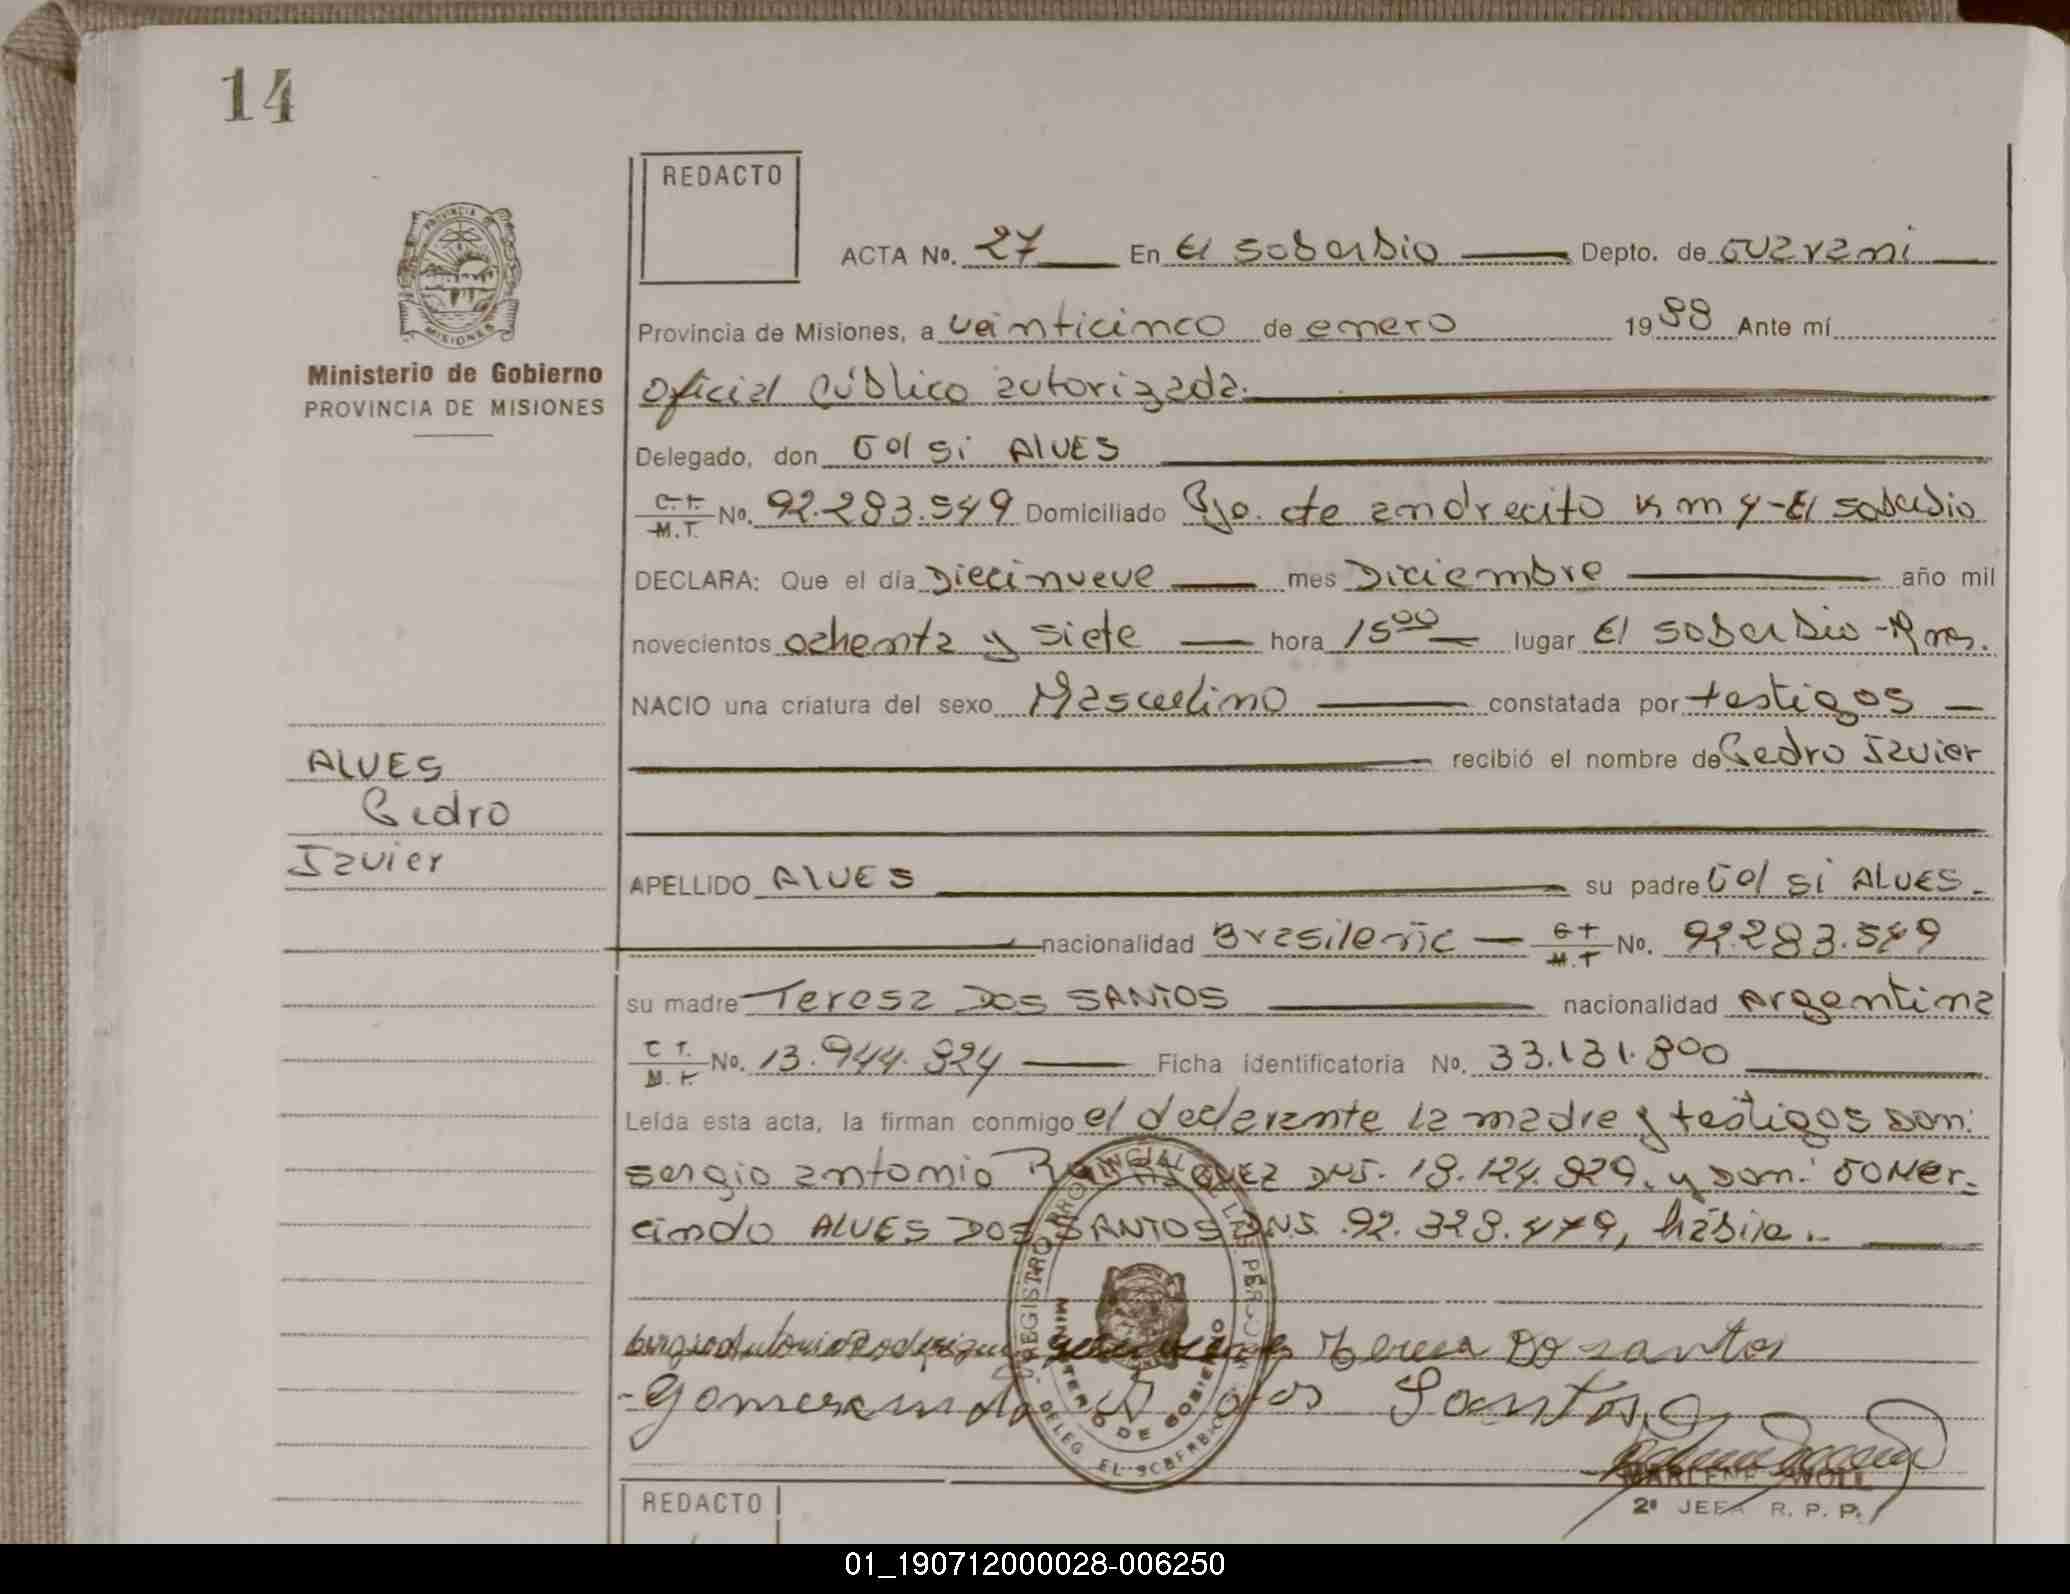 14
REDACTO
PROVINCIA
MISIONES
Ministerio de Gobierno
PROVINCIA DE MISIONES
ACTA No. 27 En El soberbio Depto. de Guarani
Provincia de Misiones, a veinticinco de enero 1988 Ante mí
oficial Público autorizada.
Delegado, don Gelsi ALVES
C.I. M.I. No. 92.283.549 Domiciliado Pjo. de andrecito Km 4-El soberbio
DECLARA: Que el día Diecinueve mes Diciembre año mil
novecientos ochenta y siete hora 15 00 lugar El soberbio-Mnes.
NACIO una criatura del sexo Masculino constatada por testigos
recibió el nombre de Pedro Javier
ALVES
Pedro
Javier
APELLIDO ALVES su padre Gelsi ALVES
nacionalidad Brasileña No. 92.283.549
su madre Teresa DOS SANTOS nacionalidad Argentina
C.I. M.I. No. 13.944.824 Ficha identificatoria No. 33.131.800
Leída esta acta, la firman conmigo el declarante la madre y testigos Don:
sergio antonio DNI. 18.124.829. y Don: GOMER-
cindo ALVES DOS SANTOS DNI. 92.328.479, hábil.
REGISTRO PROVINCIAL DE LAS PERSONAS
MINISTERIO DE GOBIERNO
DELEG. EL SOBERBIO
Teresa Do santos
dos Santos
MARLENE
2º JEFA R. P. P.
REDACTO
01_190712000028-006250